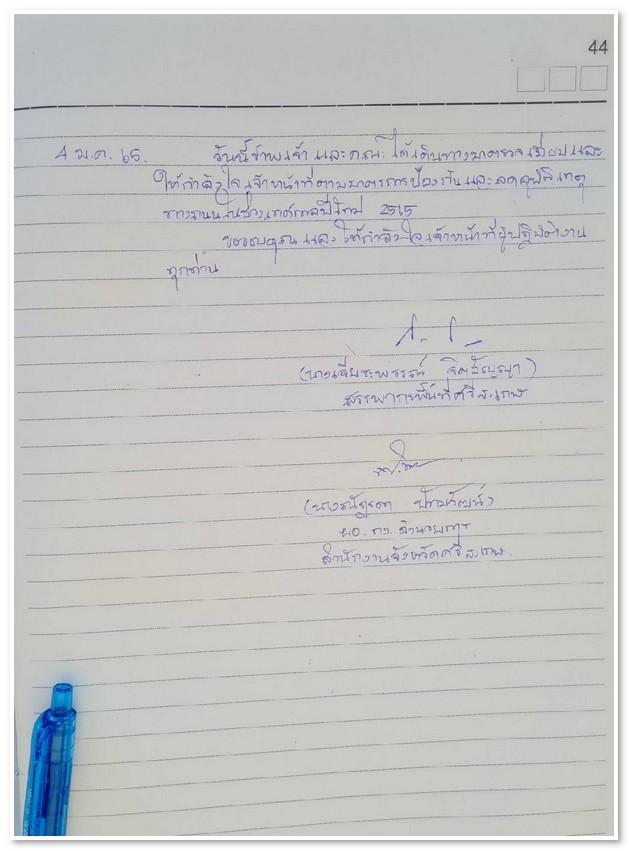 44
4 ม.ค. 65. วันนี้ข้าพเจ้าและคณะได้เดินทางมาตรวจเยี่ยมและ
ให้กำลังใจเจ้าหน้าที่ตามมาตรการป้องกันและลดอุบัติเหตุ
ทางถนนในช่วงเทศกาลปีใหม่ 2565
ขอขอบคุณและให้กำลังใจเจ้าหน้าที่ผู้ปฏิบัติงาน
ทุกท่าน
สรรพากรพื้นที่ศรีสะเกษ
ผอ. กง. อำนวยการ
สำนักงานจังหวัดศรีสะเกษ.